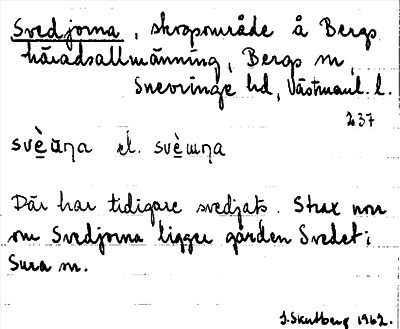 Svedjorna, skogsområde å Bergs
häradsallmänning, Bergs sn,
Snevringe hd, Västmanl. l.
237
svèɯ̯ṇa el. svèɯṇa
Där har tidigare svedjats. Strax norr
om Svedjorna ligger gården Svedet i
Sura sn.
J. Skutberg 1962.